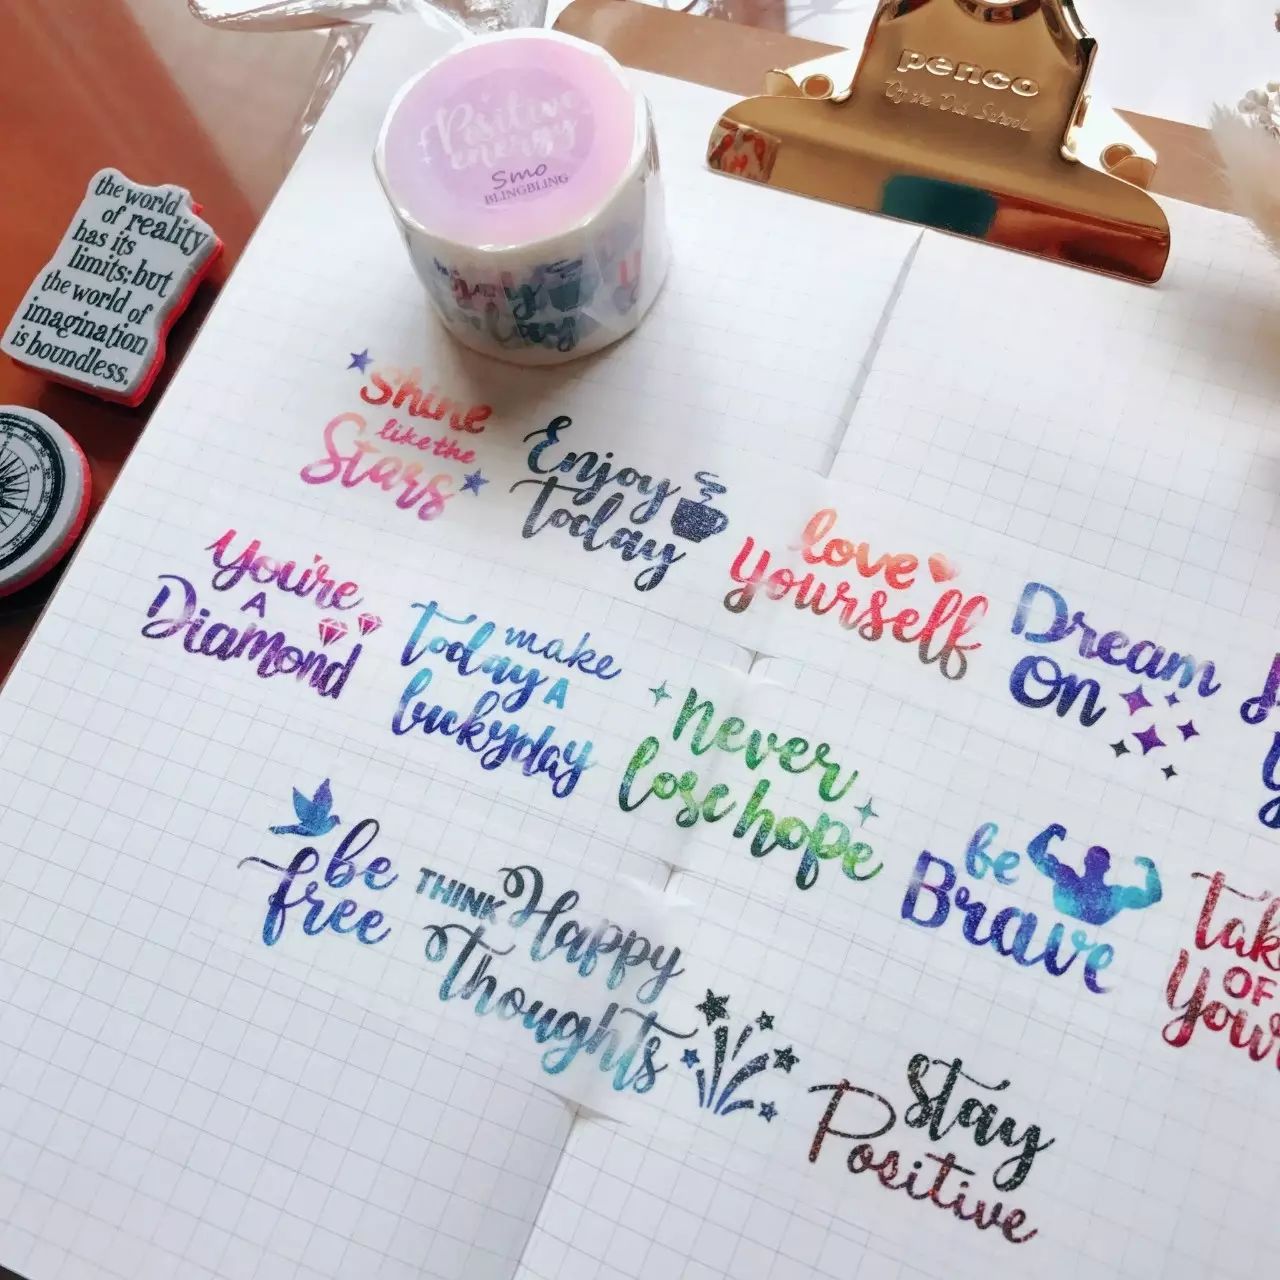 Positive
energy
Smo
BLINGBLING
penco
Of the Old School
the world
of reality
has its
limits; but
the world of
imagination
is boundless.
Shine
like the
Stars
Enjoy
today
love
Yourself
Dream
On
You're
A
Diamond
make
today A
luckyday
Never
lose hope
be
Brave
be
free
THINK Happy
Thoughts
OF
Stay
Positive